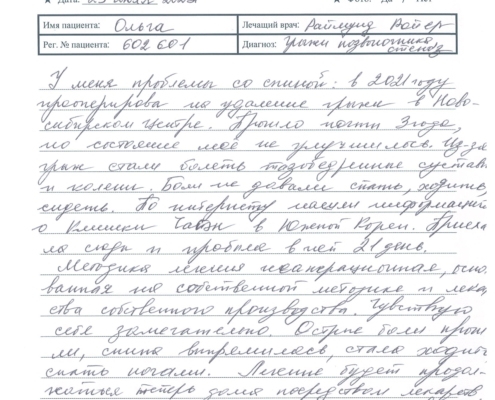 Имя пациента: Ольга Лечащий врач: Раймунд Ройер
Рег. № пациента: 602 601 Диагноз: Грыжи позвоночника стеноз
У меня проблемы со спиной: в 2021 году
прооперирова на удаление грыжи в Ново-
сибирском центре. Прошло почти 3 года,
но состояние моё не улучшилось. Из-за
грыж стали болеть тазобедренные суставы
и колени. Боли не давали спать, ходить,
сидеть. По интернету нашли информацию
о Клинике Часэн в Южной Корее. Приеха
ла сюда и пробыла в ней 21 день.
Методика лечения неоперационная, осно
ванная на собственной методике и лека
ства собственного производства. Чувствую
себя замечательно. Острые боли прош
ли, спина выпрямилась, стала ходить
спать ночами. Лечение будет продол-
жаться теперь дома посредством лекарств